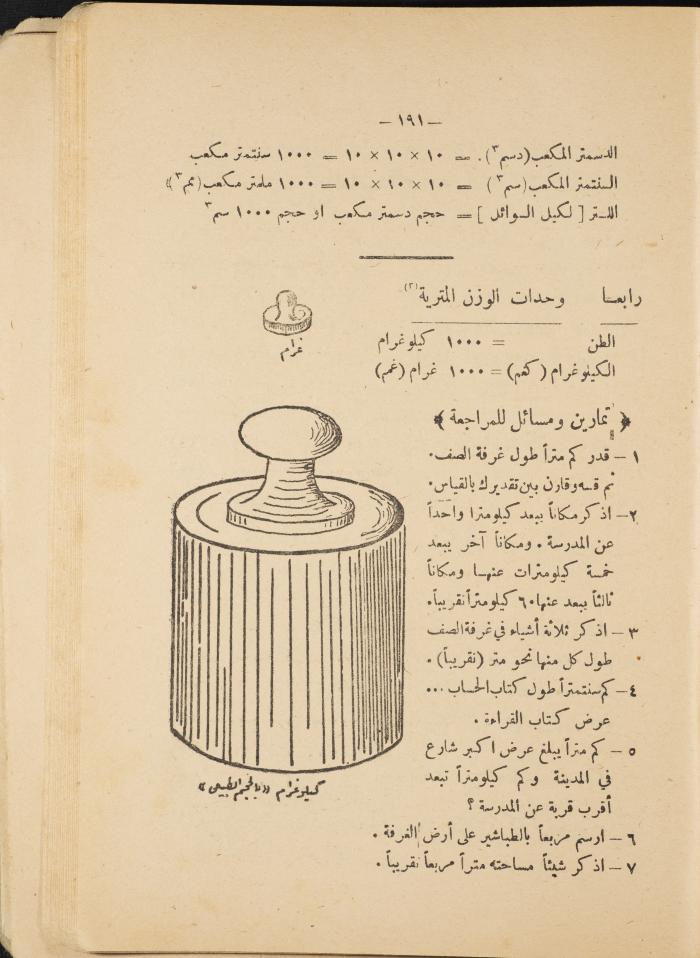 — ١٩١ —
الدسمتر المكعب (دسم٣) . = ١٠ × ١٠ × ١٠ = ١٠٠٠ سنتمتر مكعب
السنتمتر المكعب (سم٣) = ١٠ × ١٠ × ١٠ = ١٠٠٠ ملمتر مكعب (مم٣)
اللتر [ لكيل السوائل ] = حجم دسمتر مكعب او حجم ١٠٠٠ سم٣
رابعا وحدات الوزن المترية (٢)
غرام
الطن = ١٠٠٠ كيلوغرام
الكيلوغرام (كغم) = ١٠٠٠ غرام (غم)
﴿ تمارين ومسائل للمراجعة ﴾
١ — قدر كم متراً طول غرفة الصف.
ثم قسه وقارن بين تقديرك بالقياس.
٢ — اذكر مكاناً يبعد كيلومترا واحداً
عن المدرسة . ومكاناً آخر يبعد
خمسة كيلومترات عنها ومكاناً
ثالثاً يبعد عنها ٦٠ كيلومتراً تقريباً.
٣ — اذكر ثلاثة أشياء في غرفة الصف
طول كل منها نحو متر (تقريباً) .
٤ — كم سنتمتراً طول كتاب الحساب ...
عرض كتاب القراءة .
٥ — كم متراً يبلغ عرض اكبر شارع
في المدينة وكم كيلومتراً تبعد
أقرب قرية عن المدرسة ؟
كيلوغرام «بالحجم الطبيعي»
٦ — ارسم مربعاً بالطباشير على أرض الغرفة .
٧ — اذكر شيئاً مساحته متراً مربعاً تقريباً .